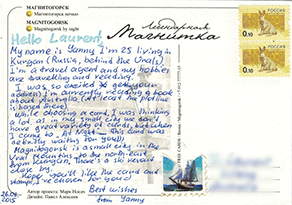 МАГНИТОГОРСК
Магнитогорск ночью
MAGNITOGORSK
Magnitogorsk by night
Легендарная
Магнитка
Hello Laurent,
My name is Yanny I'm 25 living in
Kurgan (Russia, behind the Urals).
I'm a travel agent and my hobbies
are travelling and reading.
I was so excited to get your
address I'm currently reading a book
about Australia (At least the plotline
is based there).
While choosing a card, I was thinking
a lot as in my small city we don't
have a great variety of cards, but when
I came to "At Night" - This card was
actually waiting for you))
Magnitogorsk is a small city in the
Ural Mountains to the north-east
from Kurgan, There's a ski versant
close by.
Hope you'll like the card and
stamp I've chosen for you)
Best wishes
from Yanny
26.09.
2015
Автор проекта: Марк
Дизайн: Павел Алексеев
0,10
0,10